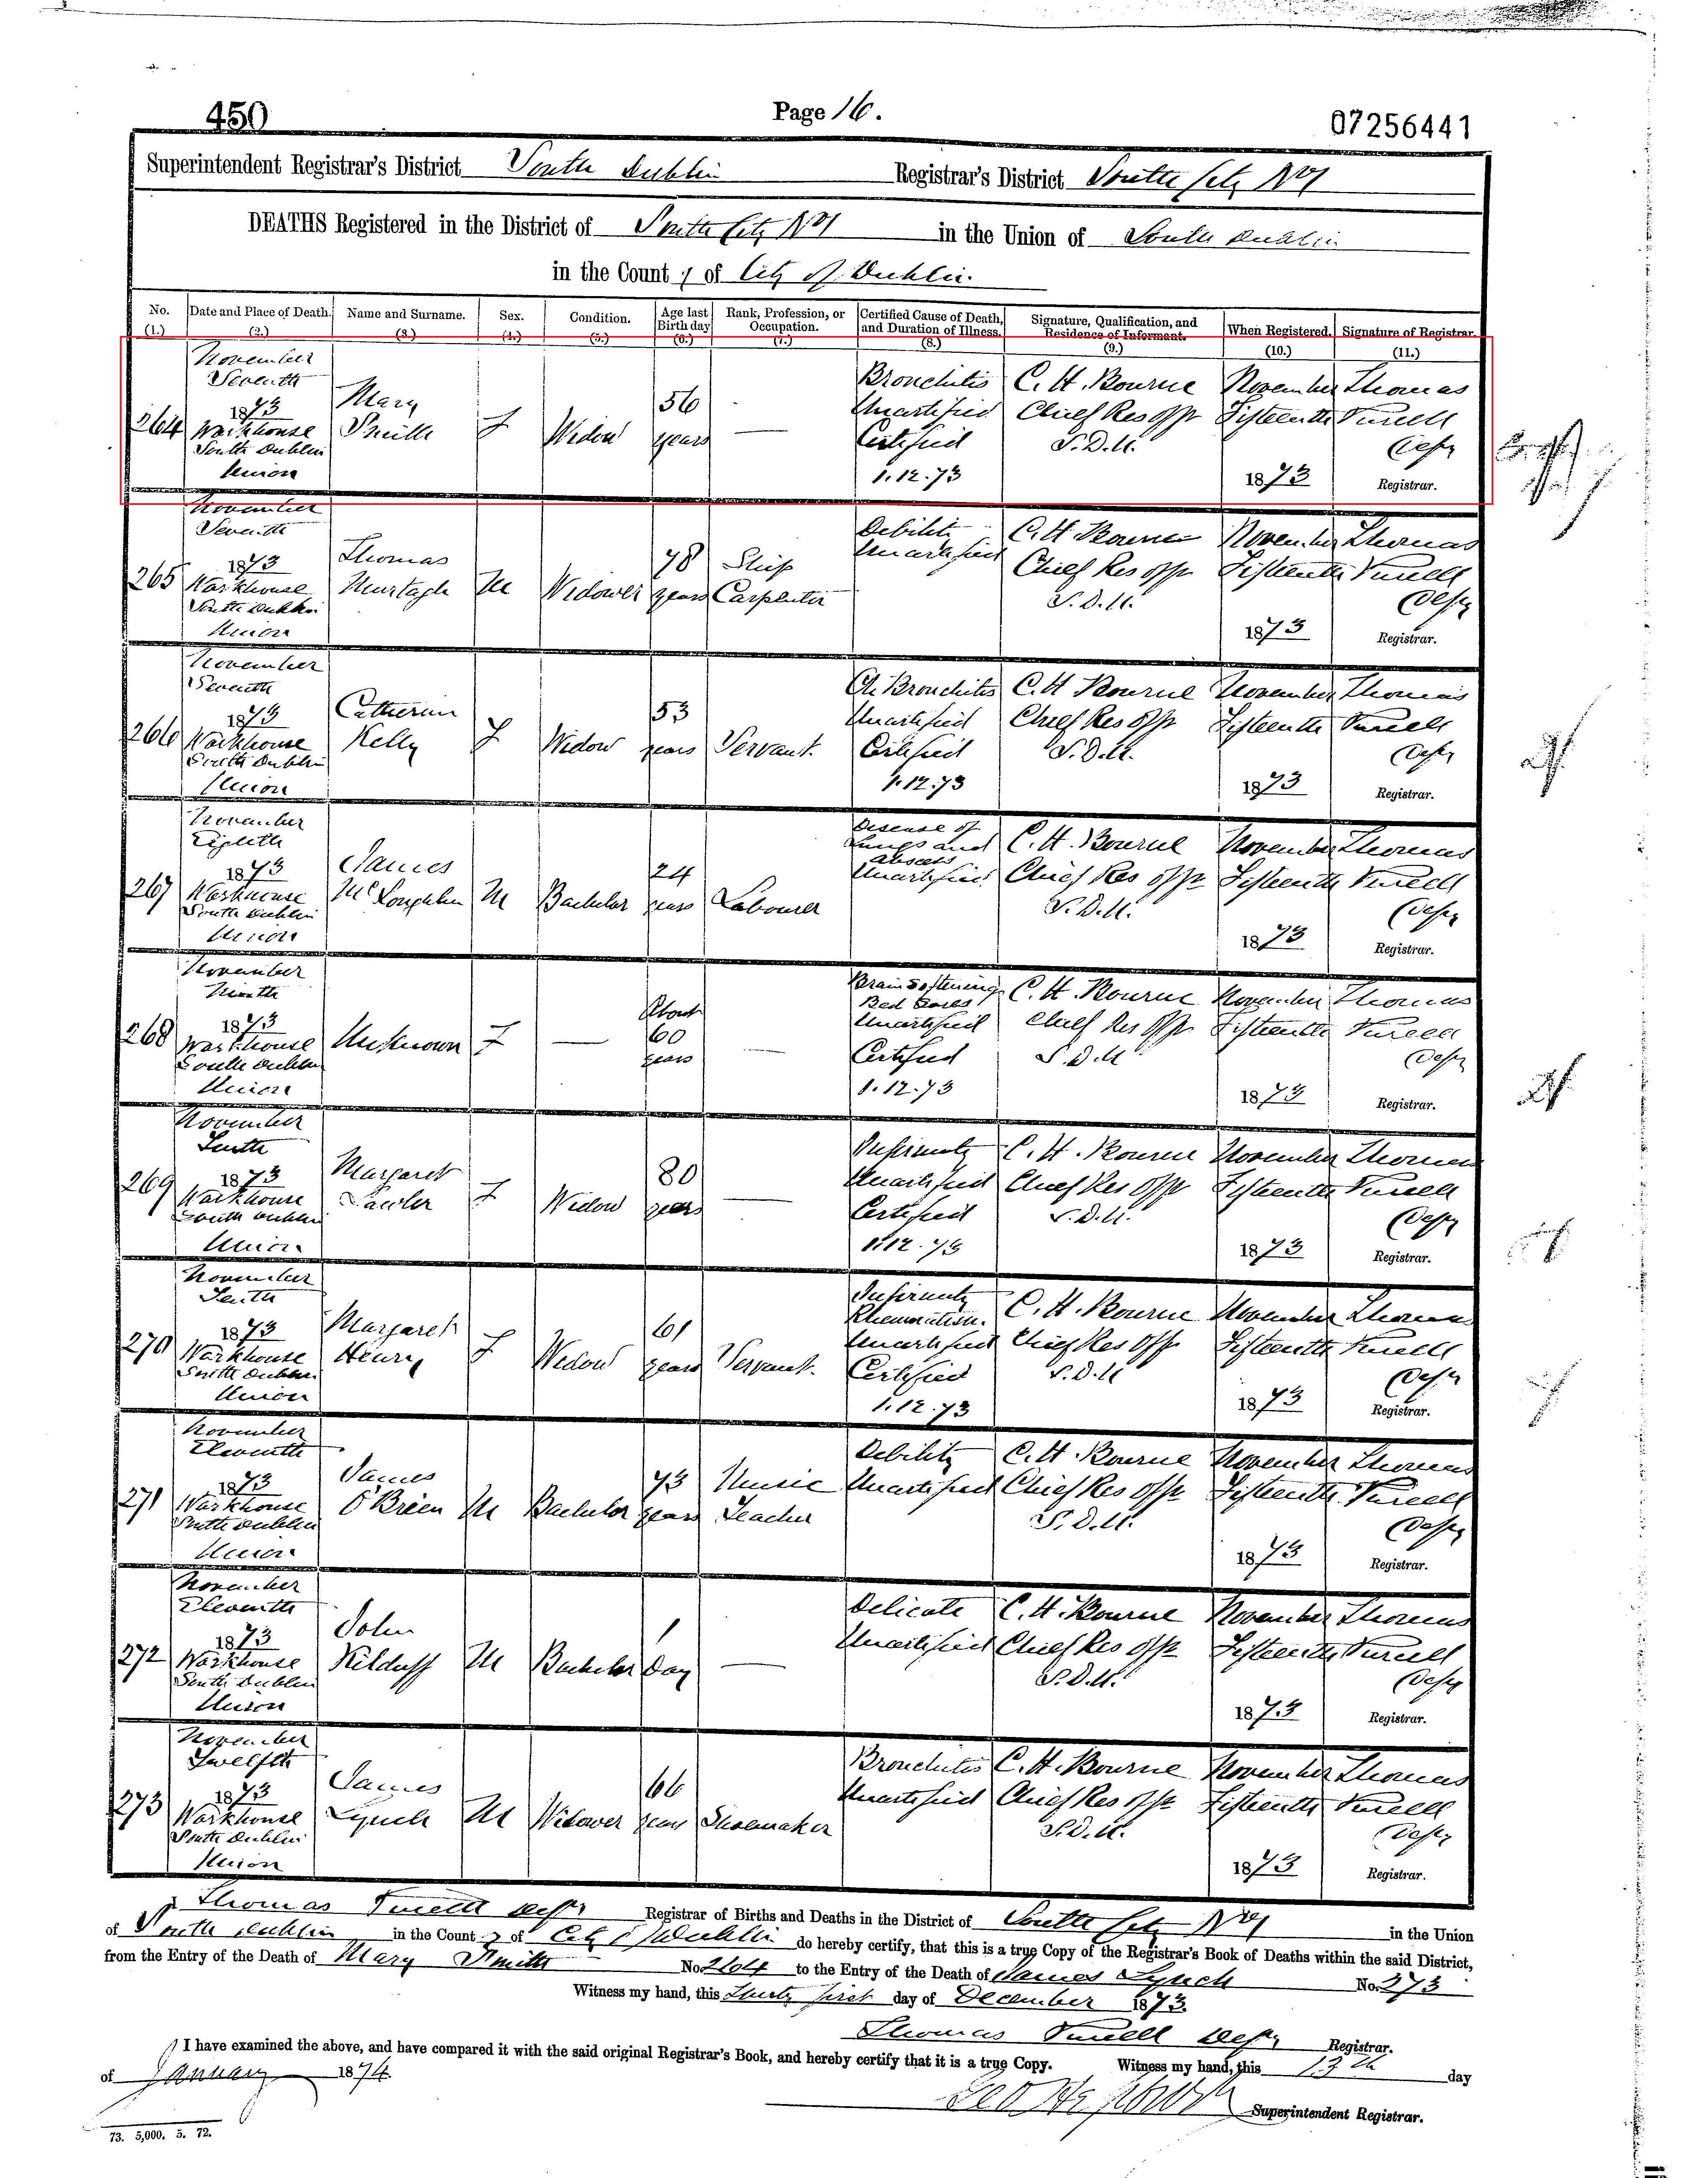 450
Page 16.
07256441
Superintendent Registrar's District South Dublin Registrar's District South City No 1
DEATHS Registered in the District of South City No 1 in the Union of South Dublin
in the County of City of Dublin.
No. Date and Place of Death. Name and Surname. Sex. Condition. Age last Birthday Rank, Profession, or Occupation. Certified Cause of Death, and Duration of Illness. Signature, Qualification, and Residence of Informant. When Registered. Signature of Registrar.
(1.) (2.) (3.) (4.) (5.) (6.) (7.) (8.) (9.) (10.) (11.)
November
Seventh Bronchitis C. H. Bourne November Thomas
1873 Mary 56 Uncertified Chief Res Offr Fifteenth Purcell
264 Workhouse Smith F Widow years — Certified S.D.U. Depy
South Dublin
Union 1.12.73 1873 Registrar.
November
Seventh Debility C. H. Bourne November Thomas
1873 Thomas 78 Ship Uncertified Chief Res Offr Fifteenth Purcell
265 Workhouse Murtagh M Widower years Carpenter S.D.U. Depy
South Dublin
Union 1873 Registrar.
November
Seventh Ch. Bronchitis C. H. Bourne November Thomas
1873 Catherine 53 Uncertified Chief Res Offr Fifteenth Purcell
266 Workhouse Kelly F Widow years Servant. Certified S.D.U. Depy
South Dublin
Union 1.12.73 1873 Registrar.
November Disease of
Eighth Lungs and C. H. Bourne November Thomas
1873 James 24 Abscess
267 Workhouse McLoughlin M Bachelor years Labourer Uncertified Chief Res Offr Fifteenth Purcell
South Dublin S.D.U. Depy
Union 1873 Registrar.
November Brain Softening C. H. Bourne November Thomas
Ninth Bed Sores
1873 About 60 Uncertified Chief Res Offr Fifteenth Purcell
268 Workhouse Unknown F — years — Certified S.D.U Depy
South Dublin
Union 1.12.73 1873 Registrar.
November
Tenth Infirmity C. H. Bourne November Thomas
1873 Margaret 80 Uncertified Chief Res Offr Fifteenth Purcell
269 Workhouse Lawler F Widow years — Certified S.D.U. Depy
South Dublin
Union 1.12.73 1873 Registrar.
November Infirmity
Tenth Rheumatism. C. H. Bourne November Thomas
1873 Margaret 61 Uncertified Chief Res Offr Fifteenth Purcell
270 Workhouse Henry F Widow years Servant. Certified S.D.U Depy
South Dublin
Union 1.12.73 1873 Registrar.
November
Eleventh Debility C. H. Bourne November Thomas
1873 James 73 Music Uncertified Chief Res Offr Fifteenth Purcell
271 Workhouse O'Brien M Bachelor years Teacher S.D.U. Depy
South Dublin
Union 1873 Registrar.
November
Eleventh Delicate C. H. Bourne November Thomas
1873 John 1 Uncertified Chief Res Offr Fifteenth Purcell
272 Workhouse Kilduff M Bachelor Day — S.D.U. Depy
South Dublin
Union 1873 Registrar.
November
Twelfth Bronchitis C. H. Bourne November Thomas
1873 James 66 Uncertified Chief Res Offr Fifteenth Purcell
273 Workhouse Lynch M Widower years Shoemaker S.D.U. Depy
South Dublin
Union 1873 Registrar.
I Thomas Purcell Depy Registrar of Births and Deaths in the District of South City No 1 in the Union
of South Dublin in the County of City of Dublin do hereby certify, that this is a true Copy of the Registrar's Book of Deaths within the said District,
from the Entry of the Death of Mary Smith No. 264 to the Entry of the Death of James Lynch No. 273
Witness my hand, this Thirty first day of December 1873.
Thomas Purcell Depy Registrar.
I have examined the above, and have compared it with the said original Registrar's Book, and hereby certify that it is a true Copy. Witness my hand, this 13th day
of January 1874.
Superintendent Registrar.
73. 5,000. 5. 72.